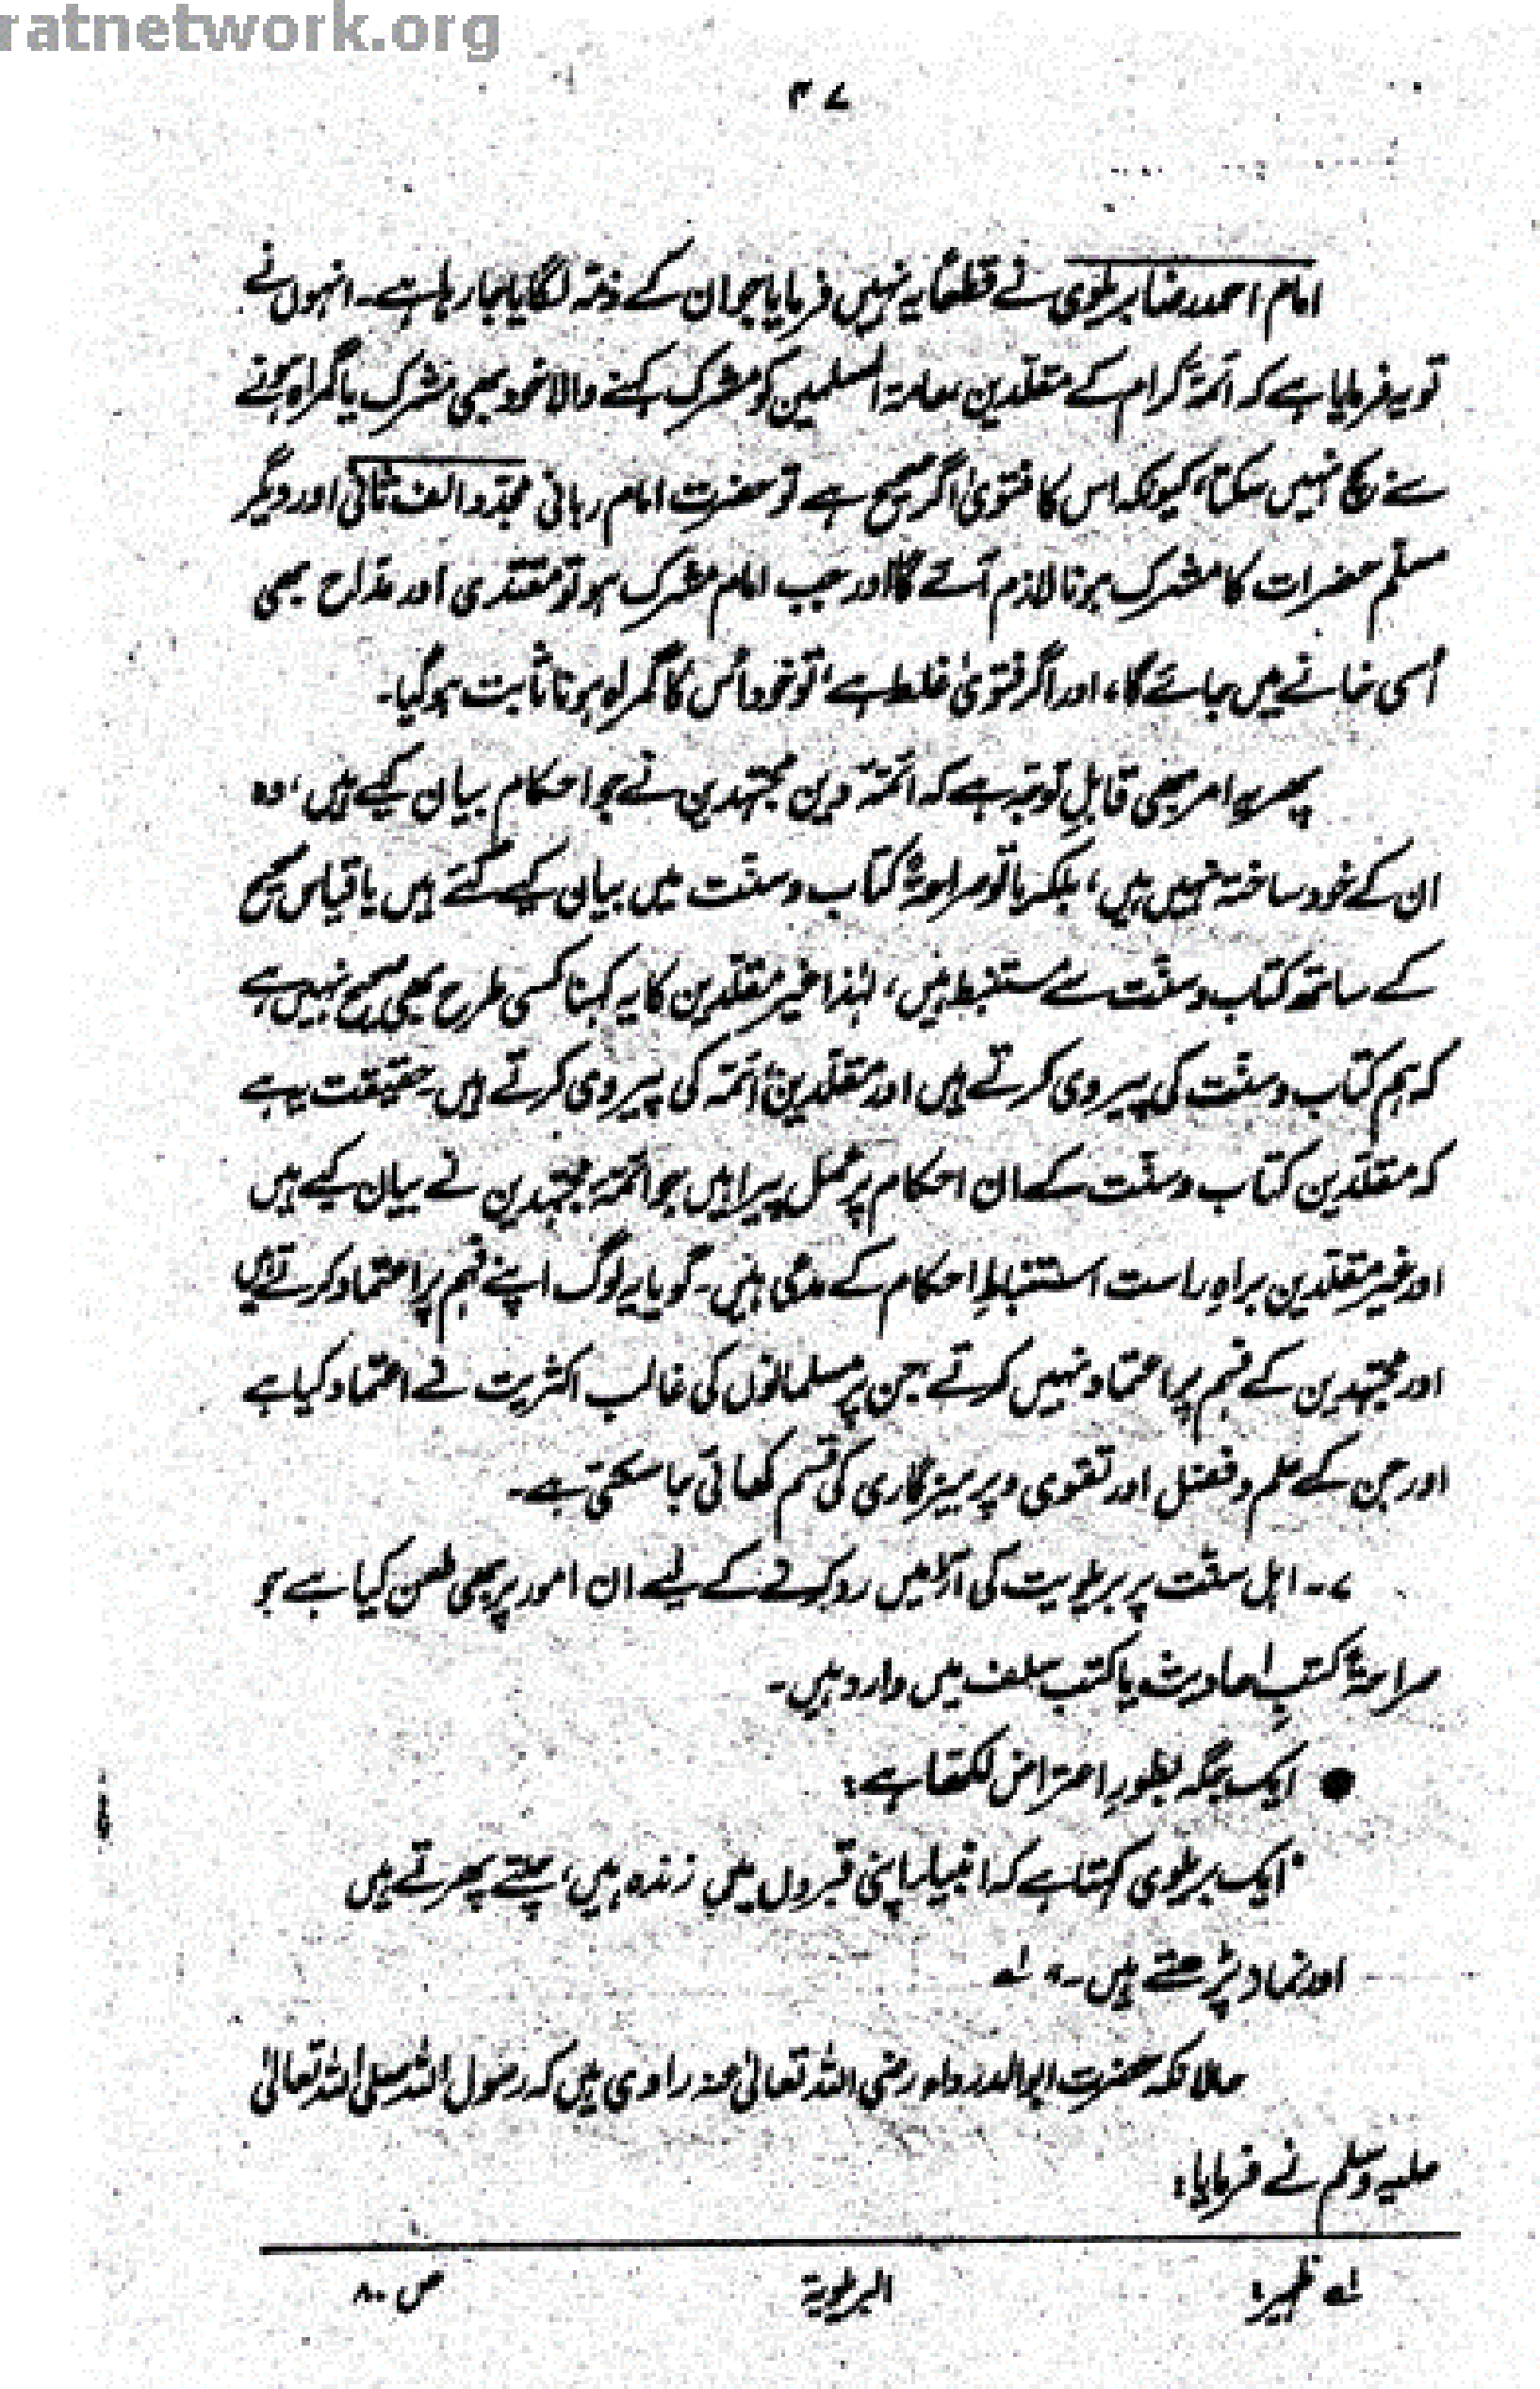 ratnetwork.org
۴۷
امام احمد رضا بریلوی نے قطعاً یہ نہیں فرمایا جو ان کے ذمّہ لگایا جا رہا ہے۔ انہوں نے
تو یہ فرمایا ہے کہ ائمۂ کرام کے مقلدین عامۃ المسلمین کو مشرک کہنے والا خود بھی مشرک یا گمراہ ہونے
سے بچ نہیں سکتا، کیونکہ اس کا فتویٰ اگر صحیح ہے تو حضرت امام ربانی مجدّد الف ثانی اور دیگر
مسلّم حضرات کا مشرک ہونا لازم آئے گا اور جب امام مشرک ہو تو مقتدی اور مدّاح بھی
اُسی خانے میں جائے گا، اور اگر فتویٰ غلط ہے، تو خود اُس کا گمراہ ہونا ثابت ہو گیا۔
پھر یہ امر بھی قابلِ توجہ ہے کہ ائمۂ دین مجتہدین نے جو احکام بیان کیے ہیں، وہ
ان کے خود ساختہ نہیں ہیں، بلکہ یا تو صراحۃً کتاب و سنّت میں بیان کیے گئے ہیں یا قیاس صحیح
کے ساتھ کتاب و سنّت سے مستنبط ہیں، لہٰذا غیر مقلّدین کا یہ کہنا کسی طرح بھی صحیح نہیں ہے
کہ ہم کتاب و سنّت کی پیروی کرتے ہیں اور مقلّدین ائمّہ کی پیروی کرتے ہیں۔ حقیقت یہ ہے
کہ مقلّدین کتاب و سنّت کے ان احکام پر عمل پیرا ہیں جو ائمّہ مجتہدین نے بیان کیے ہیں
اور غیر مقلّدین براہِ راست استنباطِ احکام کے مدعی ہیں۔ گویا یہ لوگ اپنے فہم پر اعتماد کرتے ہیں
اور مجتہدین کے فہم پر اعتماد نہیں کرتے جن پر مسلمانوں کی غالب اکثریت نے اعتماد کیا ہے
اور جن کے علم و فضل اور تقوی و پرہیزگاری کی قسم کھائی جا سکتی ہے۔
۷۔ اہل سنّت پر بریلویت کی آڑ میں رد کرنے کے لیے ان امور پر بھی طعن کیا ہے جو
صراحۃً کتبِ احادیث یا کتب سلف میں وارد ہیں۔
● ایک جگہ بطورِ اعتراض لکھتا ہے:
"ایک بریلوی کہتا ہے کہ انبیاء اپنی قبروں میں زندہ ہیں، چلتے پھرتے ہیں
اور نماز پڑھتے ہیں۔" لہ
حالانکہ حضرت ابوالدرداء رضی اللہ تعالیٰ عنہ راوی ہیں کہ رسول اللہ صلی اللہ تعالیٰ
علیہ وسلم نے فرمایا:
لہ ظہیر: البریلویۃ ص ۸۰